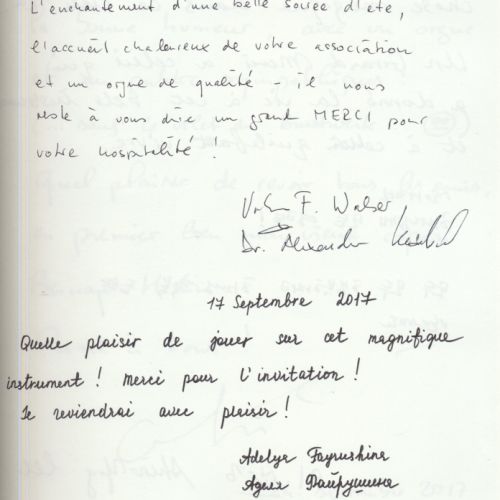 L'enchantement d'une belle soirée d'été,
l'accueil chaleureux de votre association
et un orgue de qualité – il nous
reste à vous dire un grand MERCI pour
votre hospitalité !
F. Walser
Dr. Alexander
17 Septembre 2017
Quelle plaisir de jouer sur cet magnifique
instrument ! Merci pour l'invitation !
Je reviendrai avec plaisir !
Adelya Fayrushina
Аделя Файрушина